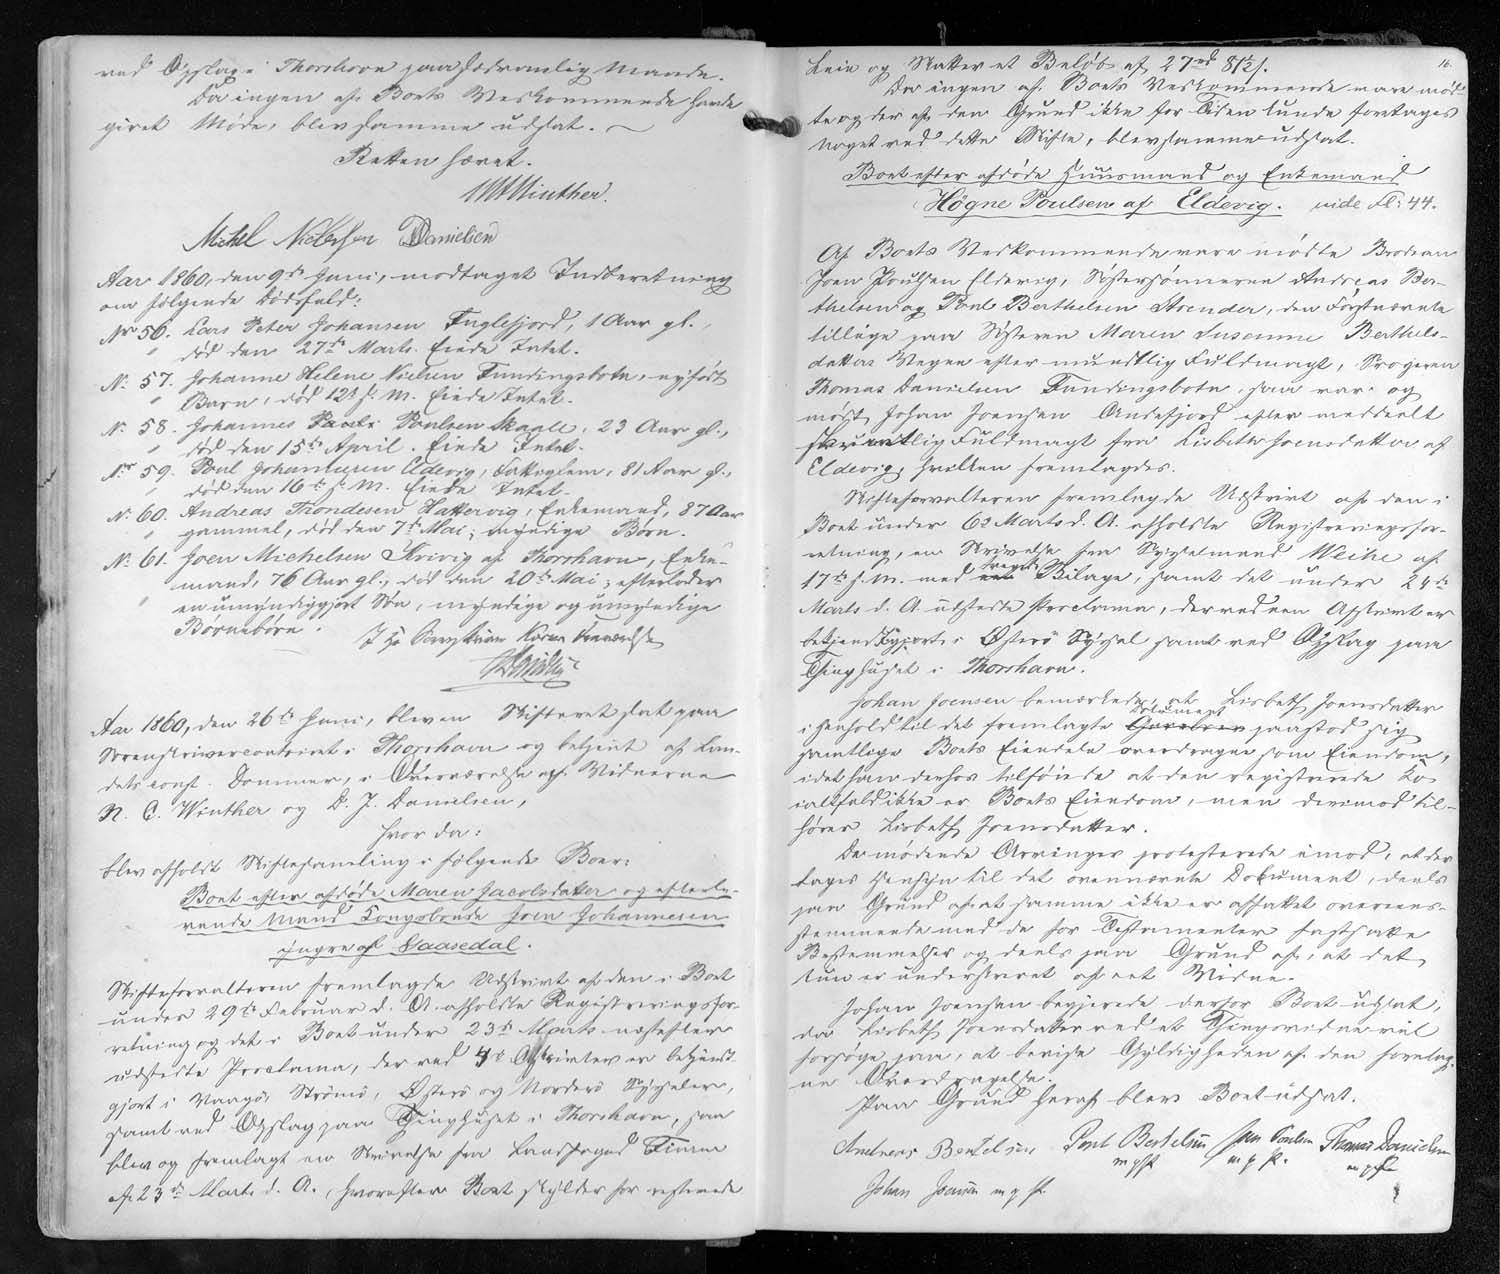 ved Opslag i Thorshavn paa sædvanlig Maade.
Da ingen af Boets Vedkommende havde
givet Møde, blev samme udsat.
Retten hævet.
Winther.
Michel Niclassen Danielsen
Aar 1860, den 9de Juni, modtaget Indberetning
om følgende Dødsfald:
Nr 56. Lars Peter Johansen Fuglefjord, 1 Aar gl.,
" død den 27de Marts. Eiede Intet.
N. 57. Johanne Helene Nielsen Fundingsbotn, nyfødt
" Barn, død 12 s. M. Eiede Intet.
N. 58. Johannes Poulsen Skaale, 23 Aar gl.,
" død den 15de April. Eiede Intet.
Nr 59. Poul Johannesen Eldevig, Fattiglem, 81 Aar gl.,
" død den 16de s. M. Eiede Intet.
N. 60. Andreas Trondesen Hattervig, Enkemand, 87 Aar
" gammel, død den 7de Mai; myndige Børn.
N. 61. Joen Michelsen Skrivig af Thorshavn, Enke-
mand, 76 Aar gl., død den 20de Mai; efterlader
" en umyndiggjort Søn, myndige og umyndige
Børnebørn.
Aar 1860, den 26de Juni, blev en Skifteret sat paa
Sorenskrivercontoiret i Thorshavn og betjent af Lan-
dets const. Dommer, i Overværelse af Vidnerne
N. C. Winther og D. J. Danielsen,
hvor da:
blev afholdt Skiftesamling i følgende Boer:
Boet efter afdøde Maren Jacobsdatter og efterle-
vende Mand Kongsbonde Joen Johannesen
yngre af Saasedal.
Skifteforvalteren fremlagde Udskrivt af den i Boet
under 29de Februar d. A. afholdte Registreringsfor-
retning og det i Boet under 23de Marts næstefter
udstedte Proclama, der ved 4 Afskrivter er bekjendt-
gjort i Vaagø, Strømø, Østerø og Norderø Sysseler,
samt ved Opslag paa Tinghuset i Thorshavn, saa
blev og fremlagt en Skrivelse fra Landfoged
af 23de Marts d. A., hvorefter Boet skylder for resterende
16.
Leie og Skatter et Beløb af 27 rd 81½ s.
Da ingen af Boets Vedkommende vare mød-
te og der af den Grund ikke for Tiden kunde foretages
noget ved dette Skifte, blev samme udsat.
Boet efter afdøde Huusmand og Enkemand
Høgne Poulsen af Eldevig. vide Fl: 44.
Af Boets Vedkommende vare mødte Broderen
Joen Poulsen Eldevig, Søstersønnerne Andreas Ber-
thelsen og Poul Berthelsen Strender, den Førstnævnte
tillige paa Søsteren Maren Susanne Berthels-
datters Vegne efter mundtlig Fuldmagt, Svogeren
Thomas Danielsen Fundingsbotn, saa var og
mødt Johan Joensen Andefjord efter meddeelt
skrivtlig Fuldmagt fra Lisbeth Joensdatter af
Eldevig, hvilken fremlagdes.
Skifteforvalteren fremlagde Udskrivt af den i
Boet under 6te Marts d. A. afholdte Registreringsfor-
retning, en Skrivelse fra Sysselmand Weihe af
17de s. M. med Bilage, samt det under 24de
Marts d. A. udstedte Proclama, der ved een Afskrivt er
bekjendtgjort i Østerø Syssel samt ved Opslag paa
Tinghuset i Thorshavn.
Johan Joensen bemærkede, at Lisbeth Joensdatter
i Henhold til det fremlagte Document paastod sig
samtlige Boets Eiendele overdragne som Eiendom,
idet han derhos tilføiede at den registrerede Ko
ialtfald ikke er Boets Eiendom, men derimod til-
hører Lisbeth Joensdatter.
De mødende Arvinger protesterede imod, at der
tages Hensyn til det ovennævnte Document, deels
paa Grund af at samme ikke er affattet overeens-
stemmende med de for Testamenter fastsatte
Bestemmelser og deels paa Grund af, at det
kun er underskrevet af eet Vidne.
Johan Joensen begjerede derfor Boet udsat,
da Lisbeth Joensdatter ved et Tingsvidne vil
forsøge paa, at bevise Gyldigheden af den foretag-
ne Overdragelse.
Paa Grund heraf blev Boet udsat.
Andreas Bertelsen Poul Bertelsen Joen Poulsen Thomas Danielsen
m. p. P. m. p. P. m. p. P.
Johan Joensen m. p. P.